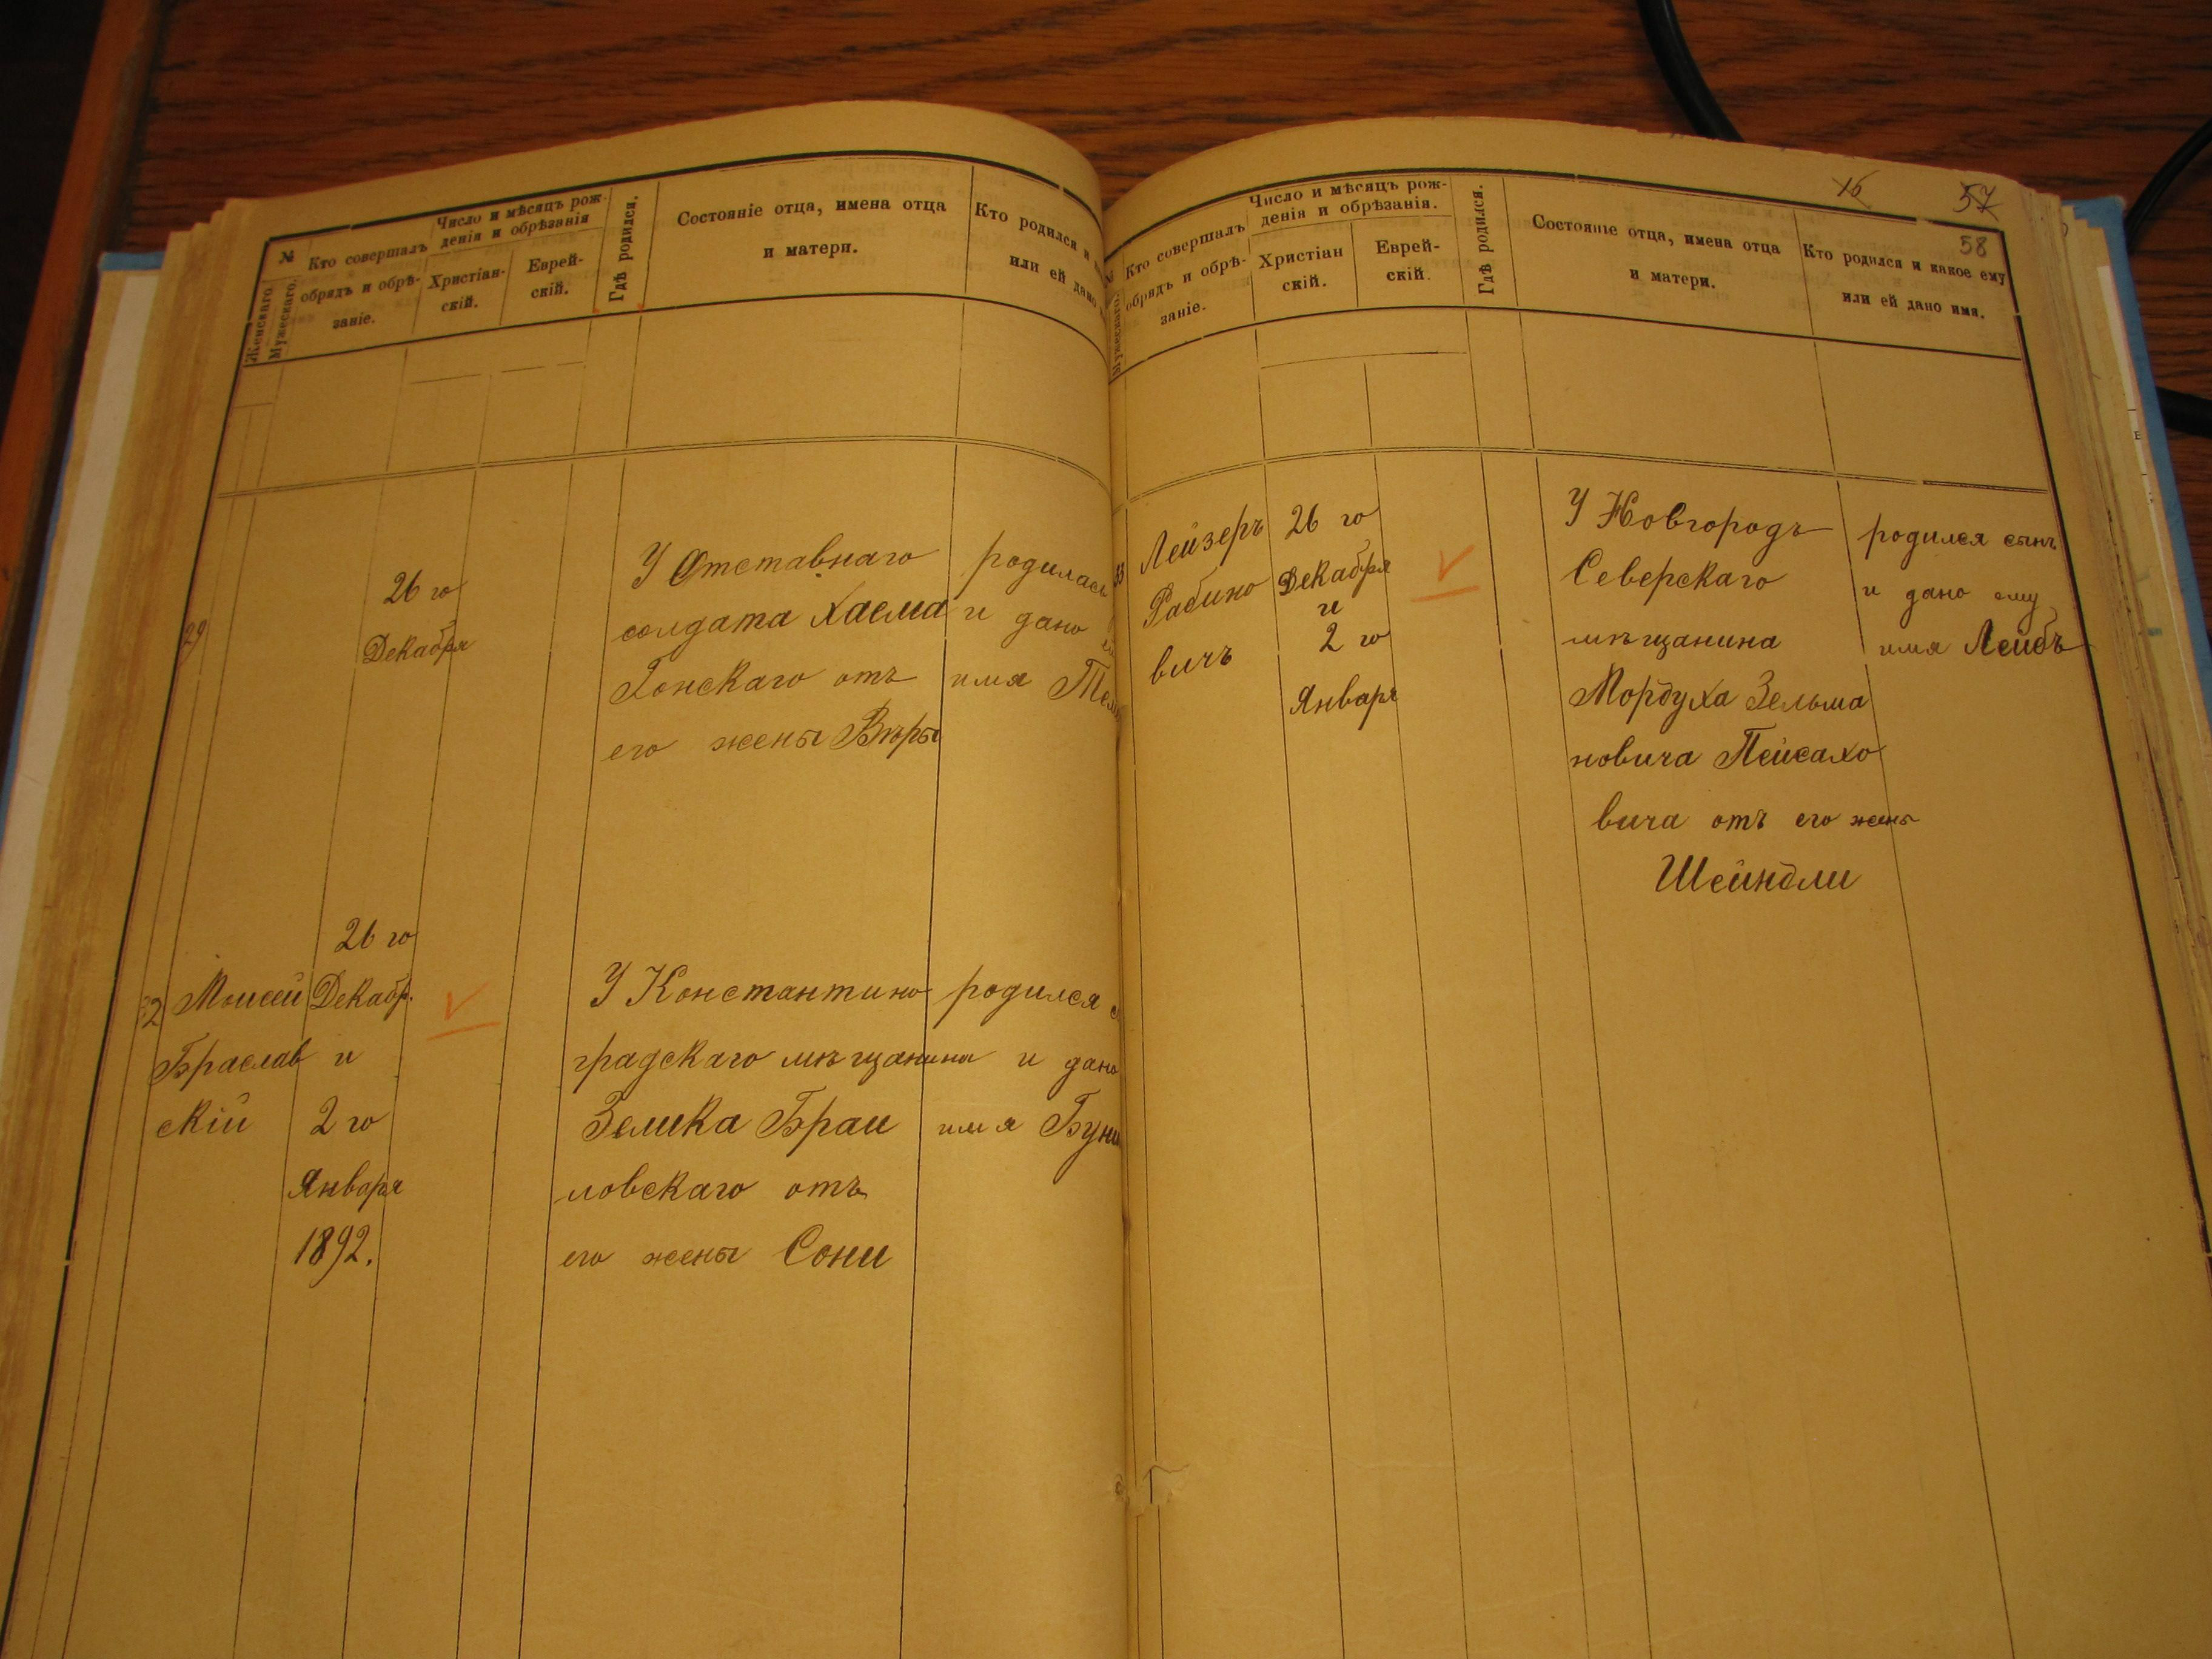 №
Женскаго
Мужескаго.
Кто совершалъ
обрядъ и обрѣ-
заніе.
Число и мѣсяцъ рож-
денія и обрѣзанія
Христіан-
скій.
Еврей-
скій.
Гдѣ родился.
Состояніе отца, имена отца
и матери.
Кто родился и
или ей дано
29
26 го
Декабря
У Отставнаго
солдата Хаема
Гонскаго отъ
его жены Вѣры
родилась
и дано
имя
32
Моисей
Браслав
скій
26 го
Декабр.
и
2 го
Января
1892.
У Константино
градскаго мѣщанина
Зелика Браи
ловскаго отъ
его жены Сони
родился
и дано
имя
16
57
58
Мужескаго.
Кто совершалъ
обрядъ и обрѣ-
заніе.
Число и мѣсяцъ рож-
денія и обрѣзанія.
Христіан
скій.
Еврей-
скій.
Гдѣ родился.
Состояніе отца, имена отца
и матери.
Кто родился и какое ему
или ей дано имя.
Лейзеръ
Рабино
вичъ
26 го
Декабря
и
2 го
Января
У Новгородъ
Северскаго
мѣщанина
Мордуха Зельма
новича Пейсахо
вича отъ его жены
Шейндли
родился сынъ
и дано ему
имя Лейбъ